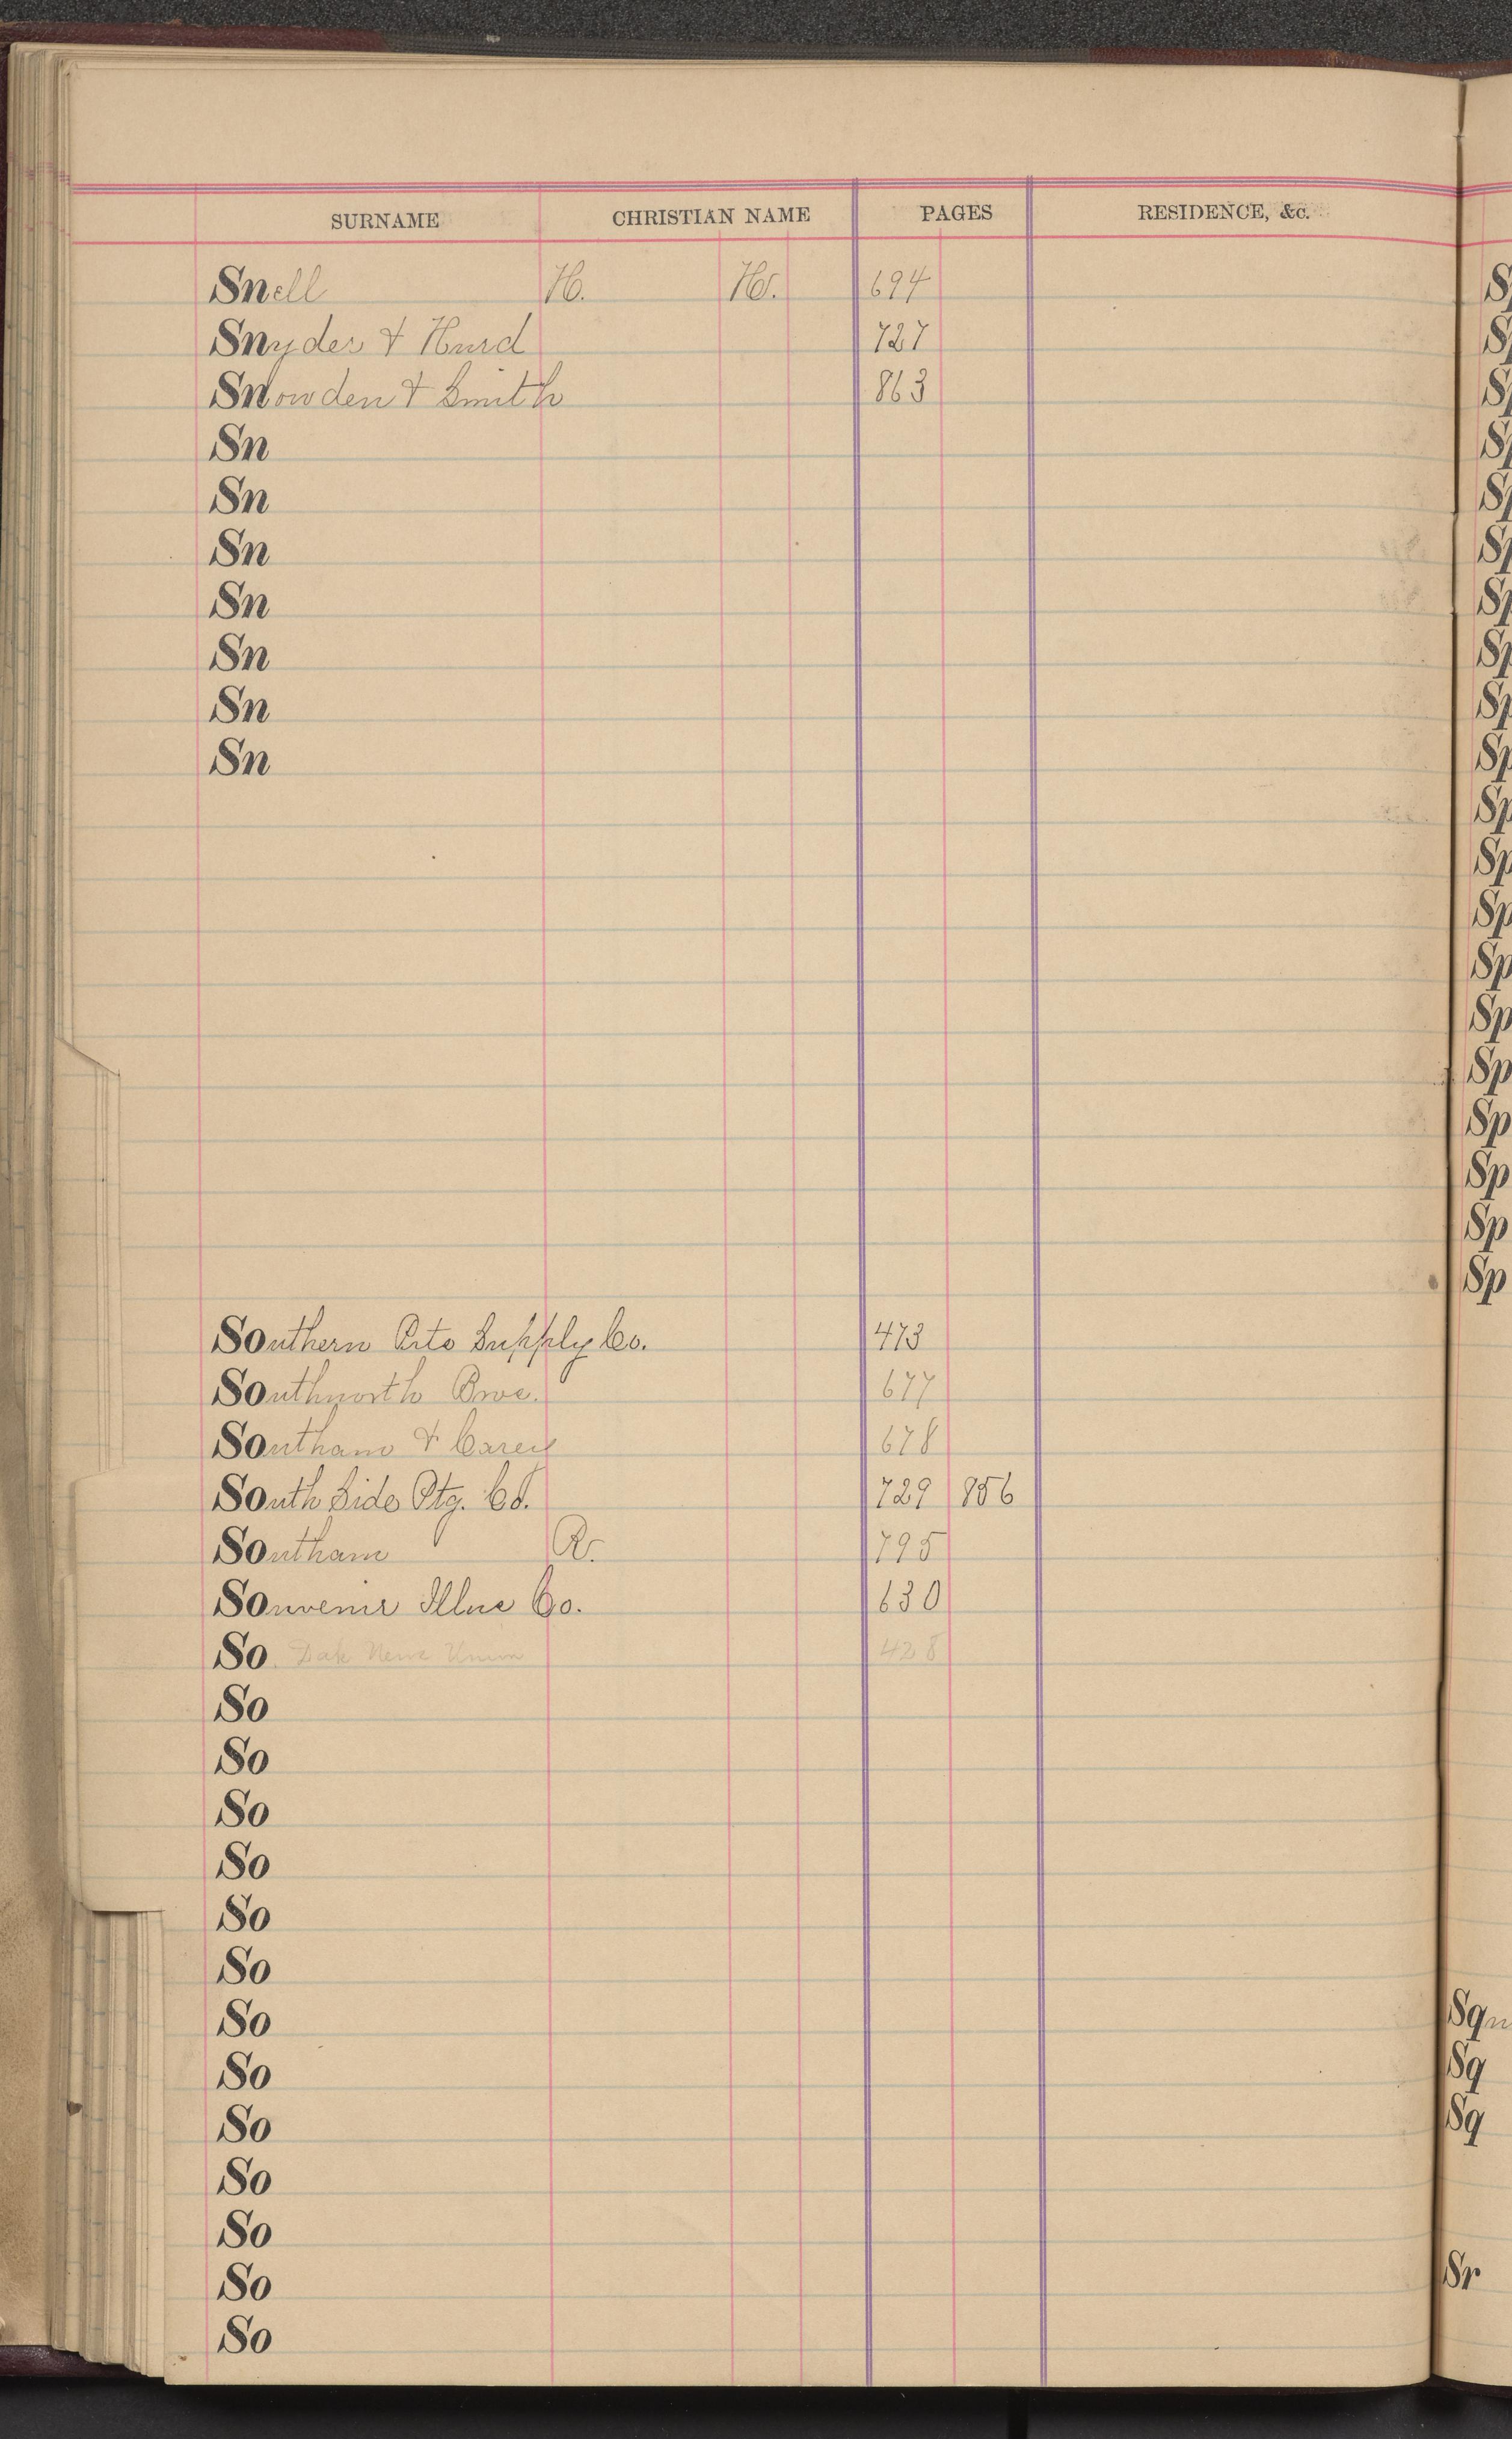 SURNAME CHRISTIAN NAME PAGES RESIDENCE, &c.
Snell H. H. 694
Snyder & Hurd 727
Snowden & Smith 863
Sn
Sn
Sn
Sn
Sn
Sn
Sn
Southern Ptg Supply Co. 473
Southworth Bros. 677
Southam & Carey 678
South Side Ptg. Co. 729 856
Southam R. 795
Souvenir Illus Co. 630
So. Dak News Union 428
So
So
So
So
So
So
So
So
So
So
So
So
So
Sp
Sp
Sp
Sp
Sp
Sp
Sp
Sp
Sp
Sp
Sp
Sp
Sp
Sp
Sp
Sp
Sp
Sp
Sp
Sp
Sq
Sq
Sq
Sr